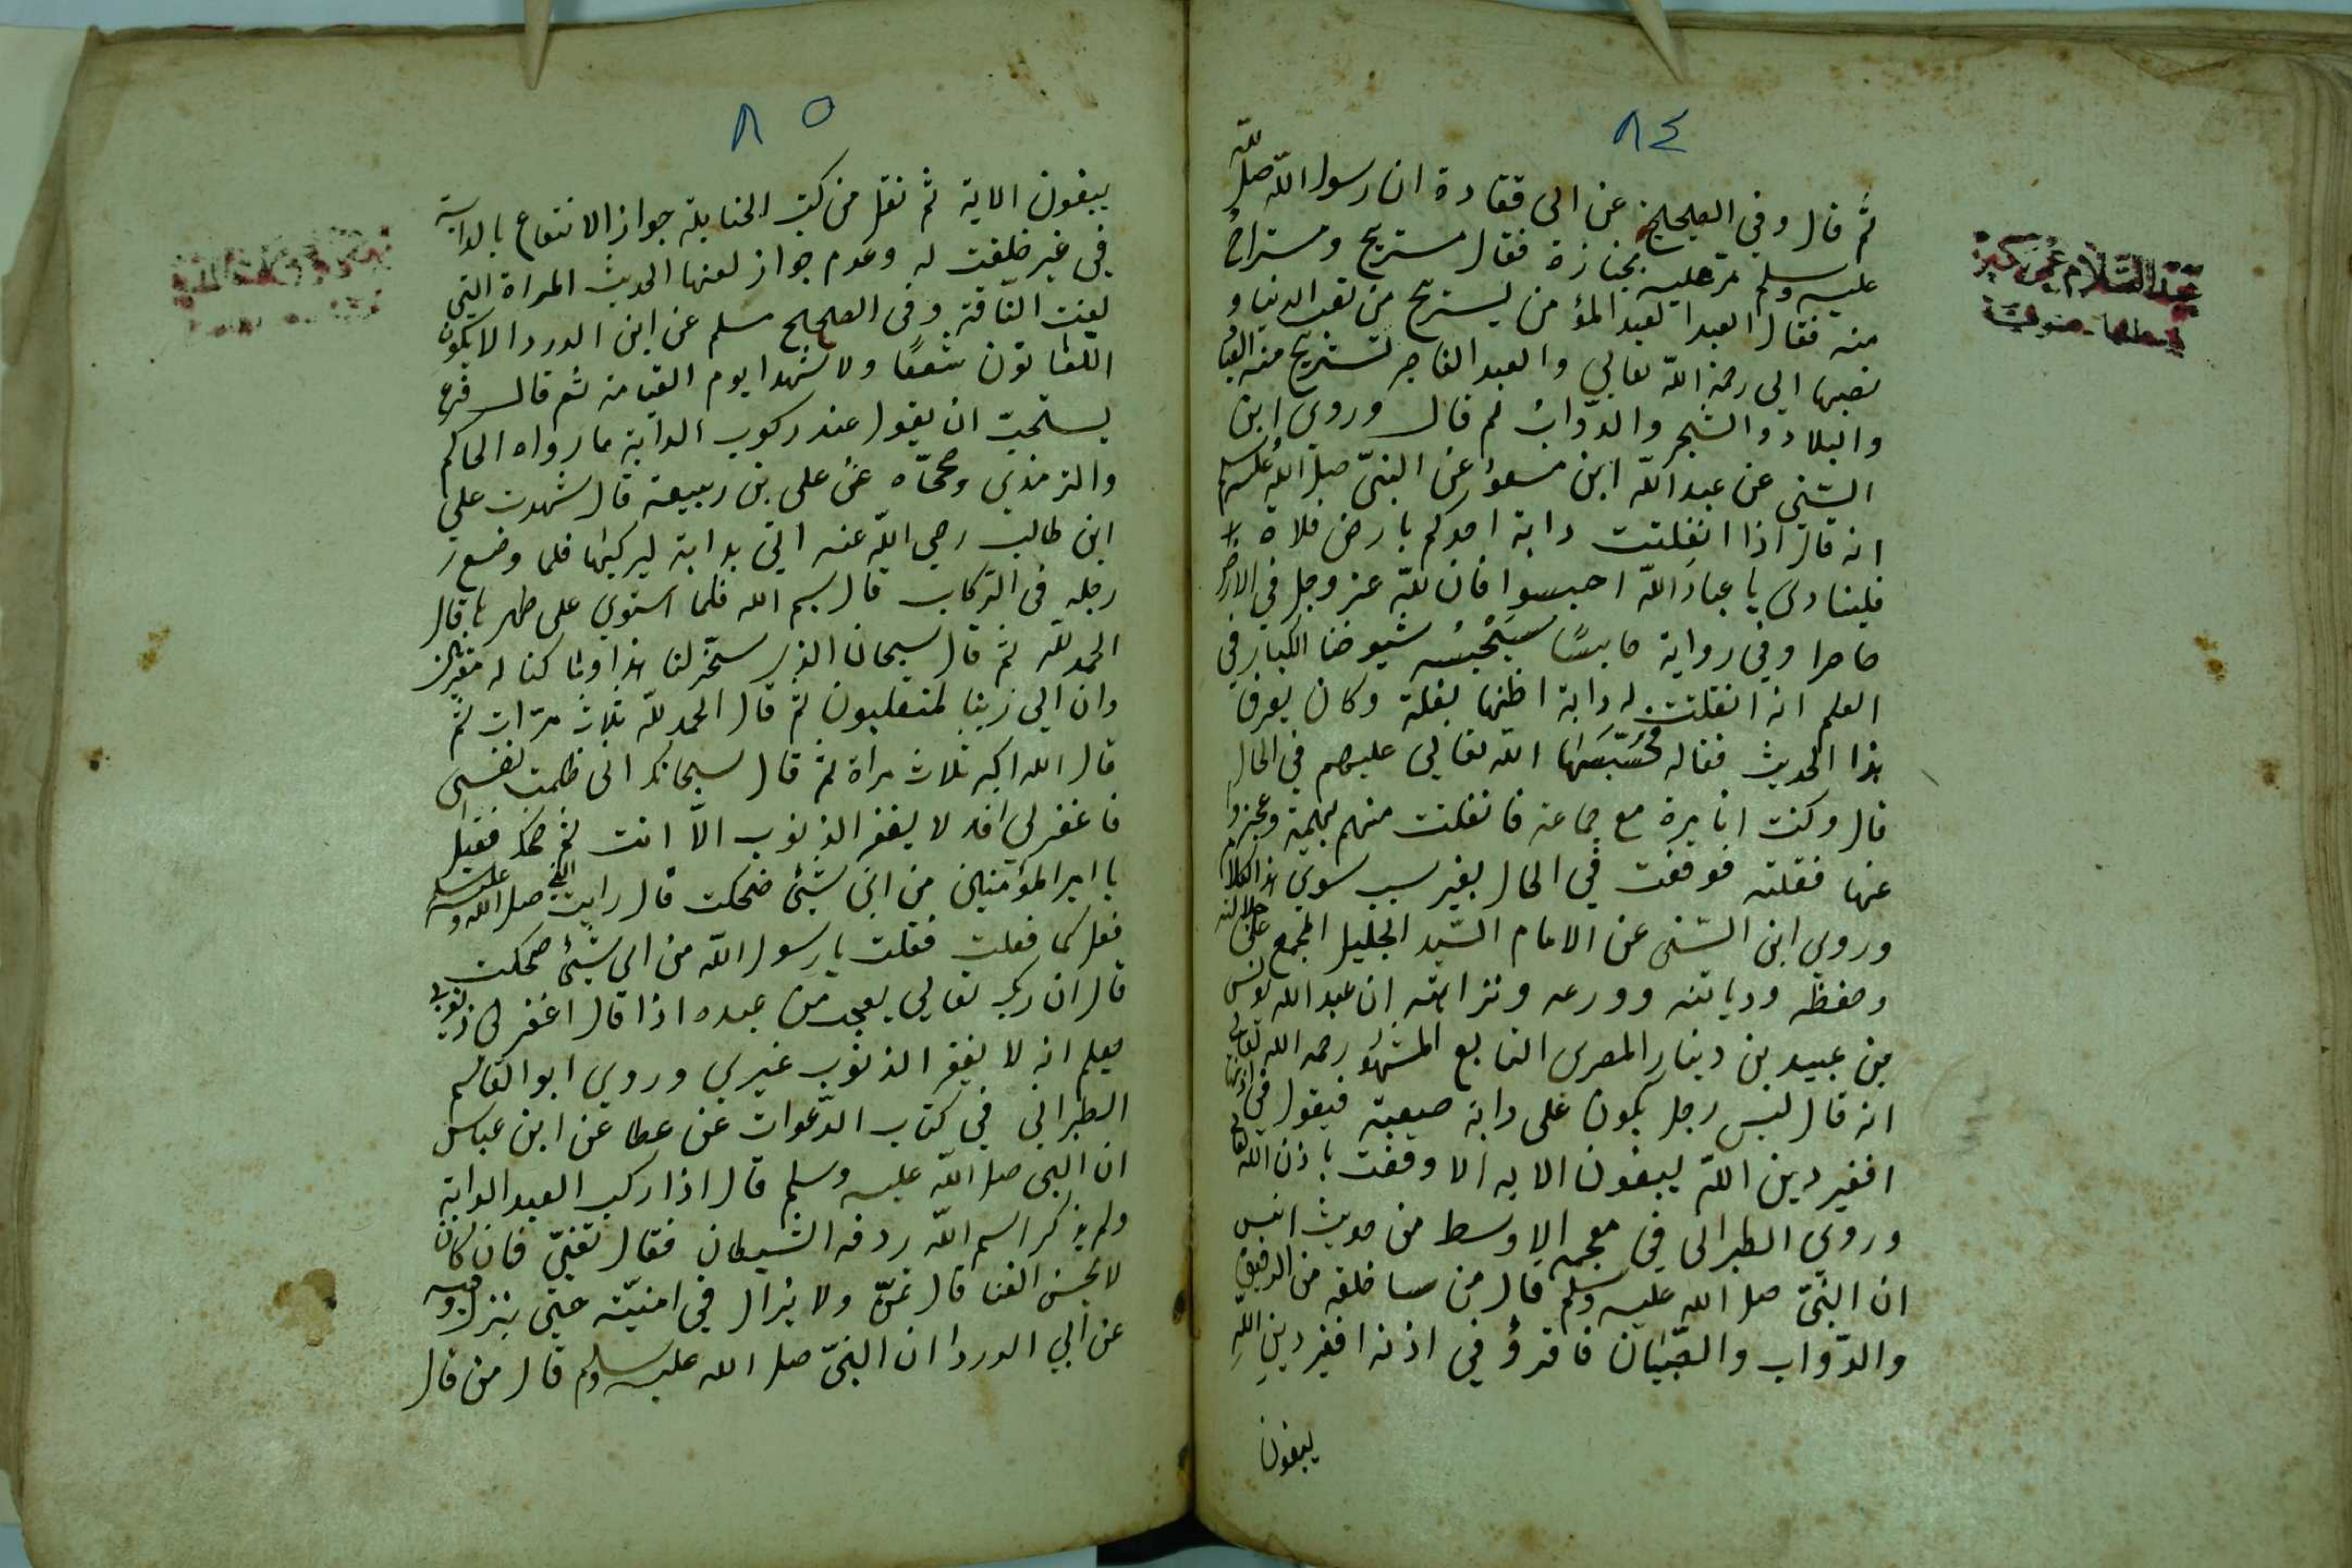 ٨٤
ثم قال وفي الصحيح عن ابى قتادة ان رسول الله صلى الله
عليه وسلم مر عليه بجنازة فقال مستريح ومستراح
منه فقال العبد العبد المؤمن يستريح من تعب الدنيا و
نصبها الى رحمة الله تعالى والعبد الفاجر تستريح منه العباد
والبلاد والشجر والدواب ثم قال وروى ابن
السني عن عبد الله ابن مسعود عن النبي صلى الله عليه وسلم
انه قال اذا انفلتت دابة احدكم بارض فلاة
فلينادى يا عباد الله احبسوا فان لله عز وجل في الارض
حاصرا وفي رواية حابسا سيحبسه شيوخنا الكبار في
العلم انه انفلتت له دابة اظنها بغلة وكان يعرف
هذا الحديث فقاله فحبسها الله تعالى عليهم في الحال
قال وكنت انا مرة مع جماعة فانفلتت منهم بهيمة وعجزوا
عنها فقلته فوقفت في الحال بغير سبب سوى هذا الكلام
وروى ابن السنى عن الامام السيد الجليل المجمع على جلالته
وحفظه وديانته وورعه ونزاهته ان عبد الله يونس
بن عبيد بن دينار المصرى التابع المشهور رحمه الله تعالى
انه قال ليس رجل يكون على دابة صعبة فيقول في اذنها
افغير دين الله يبغون الايه الا وقفت باذن الله تعالى
وروى الطبرانى في معجمه الاوسط من حديث انس
ان النبي صلى الله عليه وسلم قال من سا خلقه من الرقيق
والدواب والصبيان فاقرؤ في اذنه افغير دين الله
يبغون
عبد السلام عمر كبير
٨٥
يبغون الاية ثم نقل من كتب الحنابلة جواز الانتفاع بالدابة
في غير خلقت له وعدم جواز لعنها الحديث المراة التي
لعنت الناقة وفى الصحيح مسلم عن ابى الدردا لا يكون
اللعانون شفعًا ولا شهدا يوم القيامة ثم قال فرع
يستحب ان يقول عند ركوب الدابة ما رواه الحاكم
والترمذي وصححاه عن على بن ربيعة قال شهدت علي
ابن طالب رضي الله عنه اتى بدابة ليركبها فلما وضع
رجله فى الركاب قال بسم الله فلما استوى على ظهرها قال
الحمد لله ثم قال سبحان الذى سخر لنا هذا وما كنا له مقرنين
وان الى ربنا لمنقلبون ثم قال الحمد لله ثلاث مرات ثم
قال الله اكبر ثلاث مراة ثم قال سبحانك انى ظلمت نفسى
فاغفر لي انه لا يغفر الذنوب الا انت ثم ضحك فقيل
يا امير المؤمنين من اى شيئ ضحكت قال رايت النبي صلى الله عليه وسلم
فعل كما فعلت فقلت يا رسول الله من اى شيئ ضحكت
قال ان ربك تعالى يعجب من عبده اذا قال اغفر لى ذنوبى
يعلم انه لا يغفر الذنوب غيري وروى ابو القاسم
الطبرانى في كتاب الدعوات عن عطا عن ابن عباس
ان النبى صلى الله عليه وسلم قال اذا ركب العبد الدابة
ولم يذكر اسم الله ردفه الشيطان فقال تغنى فان كان
لا يحسن الغنا قال تمن ولا يزال في امنيته حتى ينزل وفيه
عن ابي الدردا ان النبي صلى الله عليه وسلم قال من قال